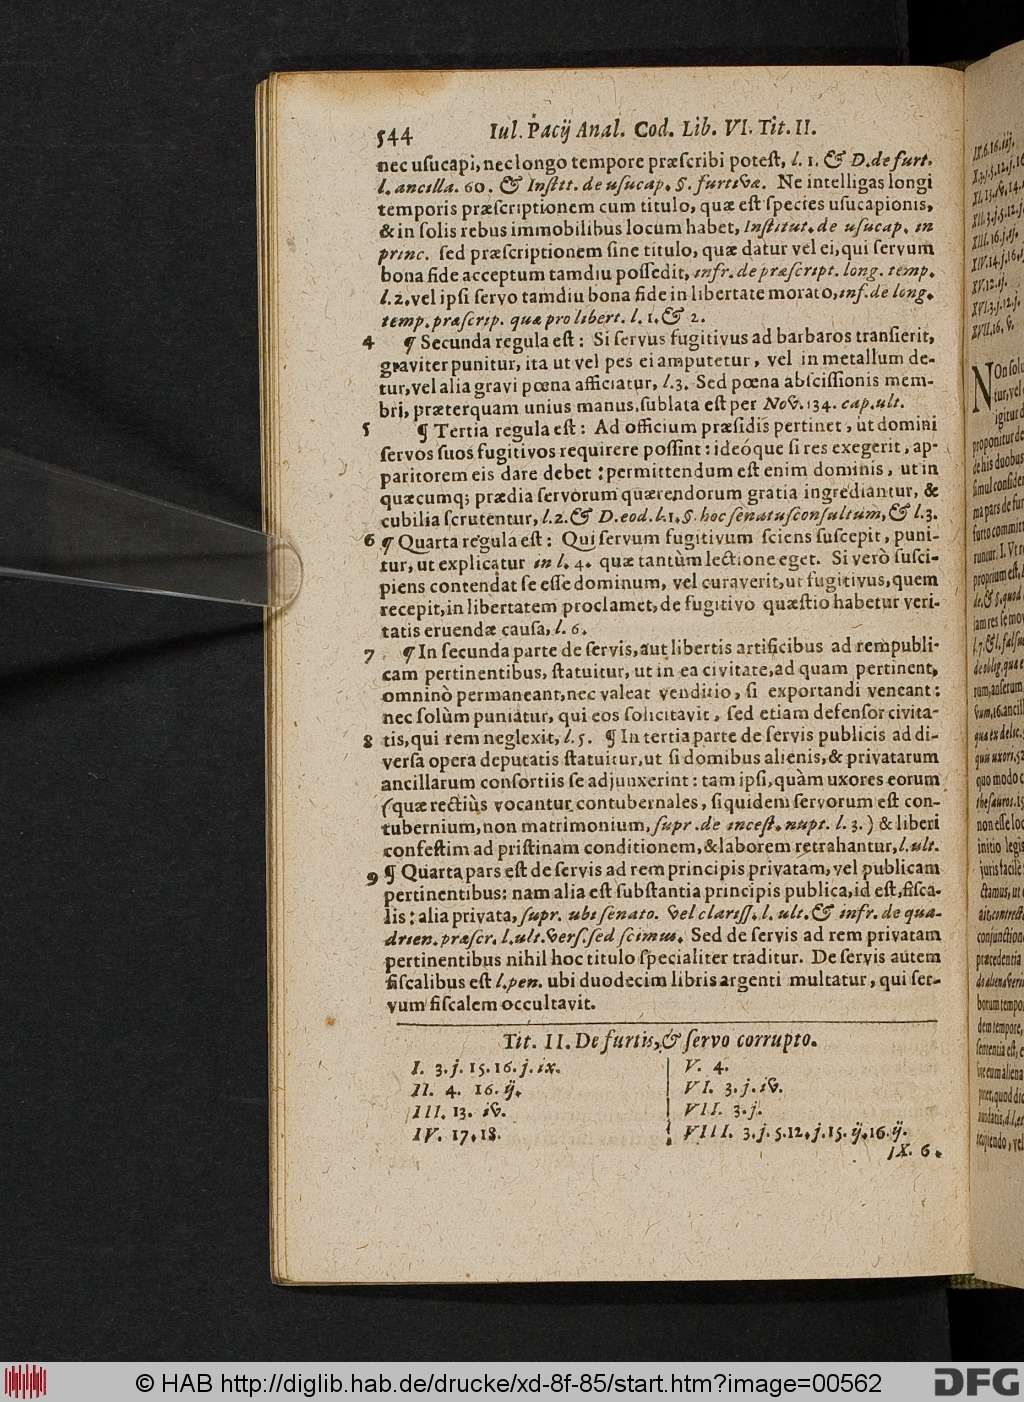 544 Iul. Pacij Anal. Cod. Lib. VI. Tit. II.
nec usucapi, nec longo tempore præscribi potest, l. 1. & D. de furt.
l. ancilla. 60. & Instit. de usucap. §. furtivæ. Ne intelligas longi
temporis præscriptionem cum titulo, quæ est species usucapionis,
& in solis rebus immobilibus locum habet, Institut. de usucap. in
princ. sed præscriptionem sine titulo, quæ datur vel ei, qui servum
bona fide acceptum tamdiu possedit, infr. de præscript. long. temp.
l. 2. vel ipsi servo tamdiu bona fide in libertate morato, inf. de long.
temp. præscrip. quæ pro libert. l. 1. & 2.
4 ¶ Secunda regula est: Si servus fugitivus ad barbaros transierit,
graviter punitur, ita ut vel pes ei amputetur, vel in metallum de-
tur, vel alia gravi pœna afficiatur, l. 3. Sed pœna abscissionis mem-
bri, præterquam unius manus, sublata est per Nov. 134. cap. ult.
5 ¶ Tertia regula est: Ad officium præsidis pertinet, ut domini
servos suos fugitivos requirere possint: ideóque si res exegerit, ap-
paritorem eis dare debet: permittendum est enim dominis, ut in
quæcumq; prædia servorum quærendorum gratia ingrediantur, &
cubilia scrutentur, l. 2. & D. eod. l. 1. §. hoc senatusconsultum, & l. 3.
6 ¶ Quarta regula est: Qui servum fugitivum sciens suscepit, puni-
tur, ut explicatur in l. 4. quæ tantùm lectione eget. Si verò susci-
piens contendat se esse dominum, vel curaverit, ut fugitivus, quem
recepit, in libertatem proclamet, de fugitivo quæstio habetur veri-
tatis eruendæ causa, l. 6.
7 ¶ In secunda parte de servis, aut libertis artificibus ad rempubli-
cam pertinentibus, statuitur, ut in ea civitate, ad quam pertinent,
omninò permaneant, nec valeat venditio, si exportandi veneant:
nec solùm puniatur, qui eos solicitavit, sed etiam defensor civita-
8 tis, qui rem neglexit, l. 5. ¶ In tertia parte de servis publicis ad di-
versa opera deputatis statuitur, ut si domibus alienis, & privatarum
ancillarum consortiis se adjunxerint: tam ipsi, quàm uxores eorum
(quæ rectiùs vocantur contubernales, siquidem servorum est con-
tubernium, non matrimonium, supr. de incest. nupt. l. 3.) & liberi
confestim ad pristinam conditionem, & laborem retrahantur, l. ult.
9 ¶ Quarta pars est de servis ad rem principis privatam, vel publicam
pertinentibus: nam alia est substantia principis publica, id est, fisca-
lis: alia privata, supr. ubi senato. vel clariss. l. ult. & infr. de qua-
drien. præscr. l. ult. vers. sed scimus. Sed de servis ad rem privatam
pertinentibus nihil hoc titulo specialiter traditur. De servis autem
fiscalibus est l. pen. ubi duodecim libris argenti multatur, qui ser-
vum fiscalem occultavit.
Tit. II. De furtis, & servo corrupto.
I. 3. j. 15. 16. j. ix.
II. 4. 16. ij.
III. 13. iv.
IV. 17. 18.
V. 4.
VI. 3. j. iv.
VII. 3. j.
VIII. 3. j. 5. 12. j. 15. ij. 16. ij.
IX. 6.
© HAB http://diglib.hab.de/drucke/xd-8f-85/start.htm?image=00562
DFG